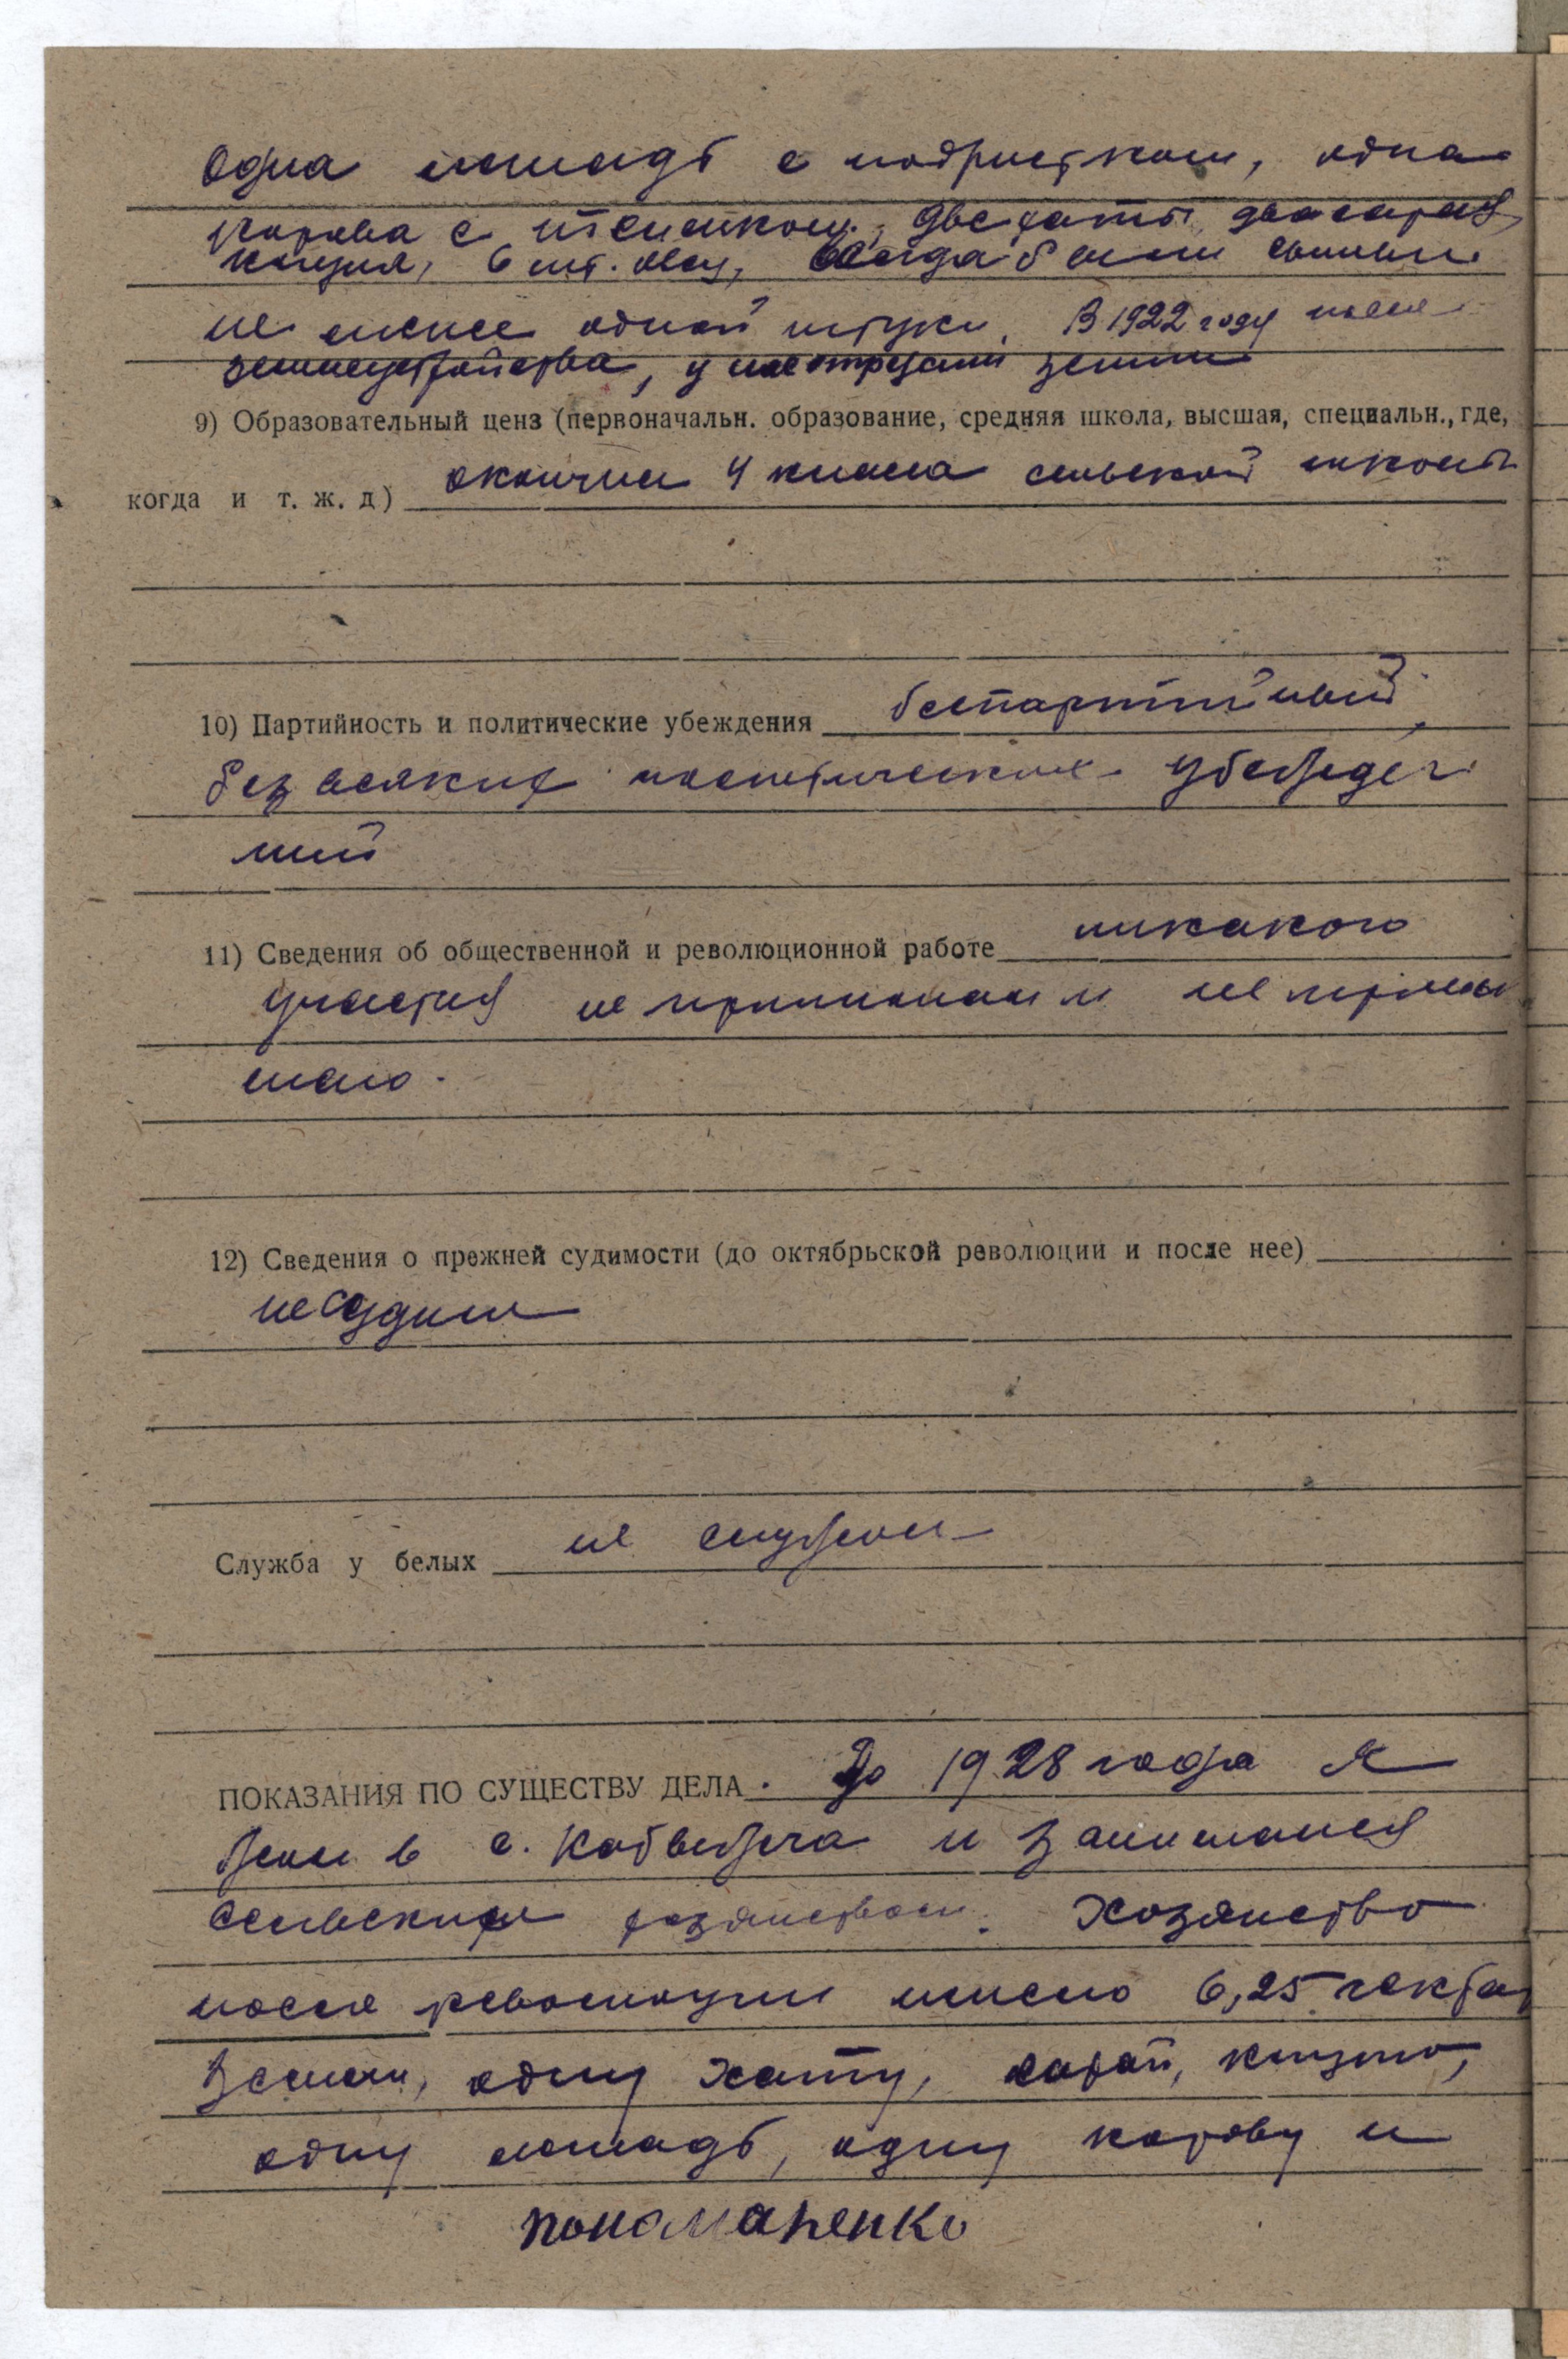 одна лошадь с подростком, одна
корова с теленком, две хаты, два сарая,
клуня, 6 шт. овец, всегда были свиньи
не менее одной штуки. В 1922 году после
землеустройства, у нас отрезали земли
9) Образовательный ценз (первоначальн. образование, средняя школа, высшая, специальн., где,
когда и т. ж. д) окончил 4 класса сельской школы
10) Партийность и политические убеждения беспартийный,
без всяких политических убежде-
ний
11) Сведения об общественной и революционной работе никакого
участия не принимал и не прини-
маю.
12) Сведения о прежней судимости (до октябрьской революции и после нее)
не судим
Служба у белых не служил
ПОКАЗАНИЯ ПО СУЩЕСТВУ ДЕЛА. До 1928 года я
жил в с. и занимался
сельским хозяйством. Хозяйство
после революции имело 6,25 гектар
земли, одну хату, сарай, клуню,
одну лошадь, одну корову и
Пономаренко